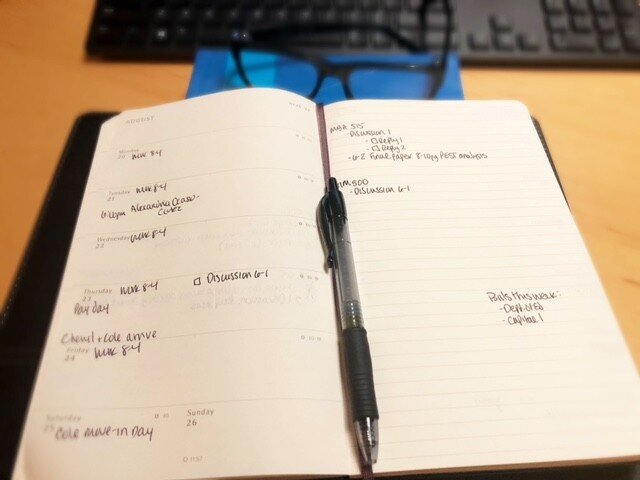 AUGUST
Monday
20 WRK 8-4
Tuesday
21
Alexandria Ocasio-
Cortez
Wednesday WRK 8-4
22
Thursday WRK 8-4
23
Pay Day
□ Discussion 6-1
Cheryl + Cole arrive
Friday WRK 8-4
24
Saturday
25 Cole move-in Day
Sunday
26
MBA 515
- Discussion 1
- □ Reply 1
- □ Reply 2
- 6-2 Final paper & copy PEST analysis
500
- Discussion 6-1
Bills this week:
- Dept of Ed
- Capital 1